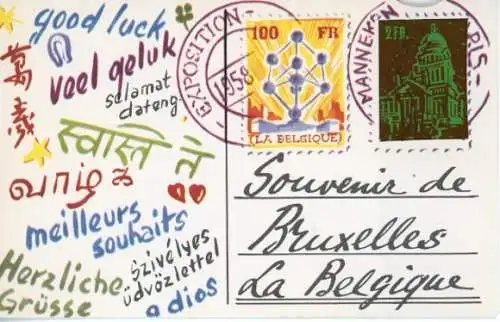 good luck
veel geluk
萬
歲
selamat
dateng
स्वास्ते ते
வாழ்க
meilleurs
souhaits
Herzliche
Grüsse
szivélyes
üdvözlettel
adios
EXPOSITION
1958
100 FR
(LA BELGIQUE)
MANNEKEN PIS
2 FR.
Souvenir de
Bruxelles
La Belgique